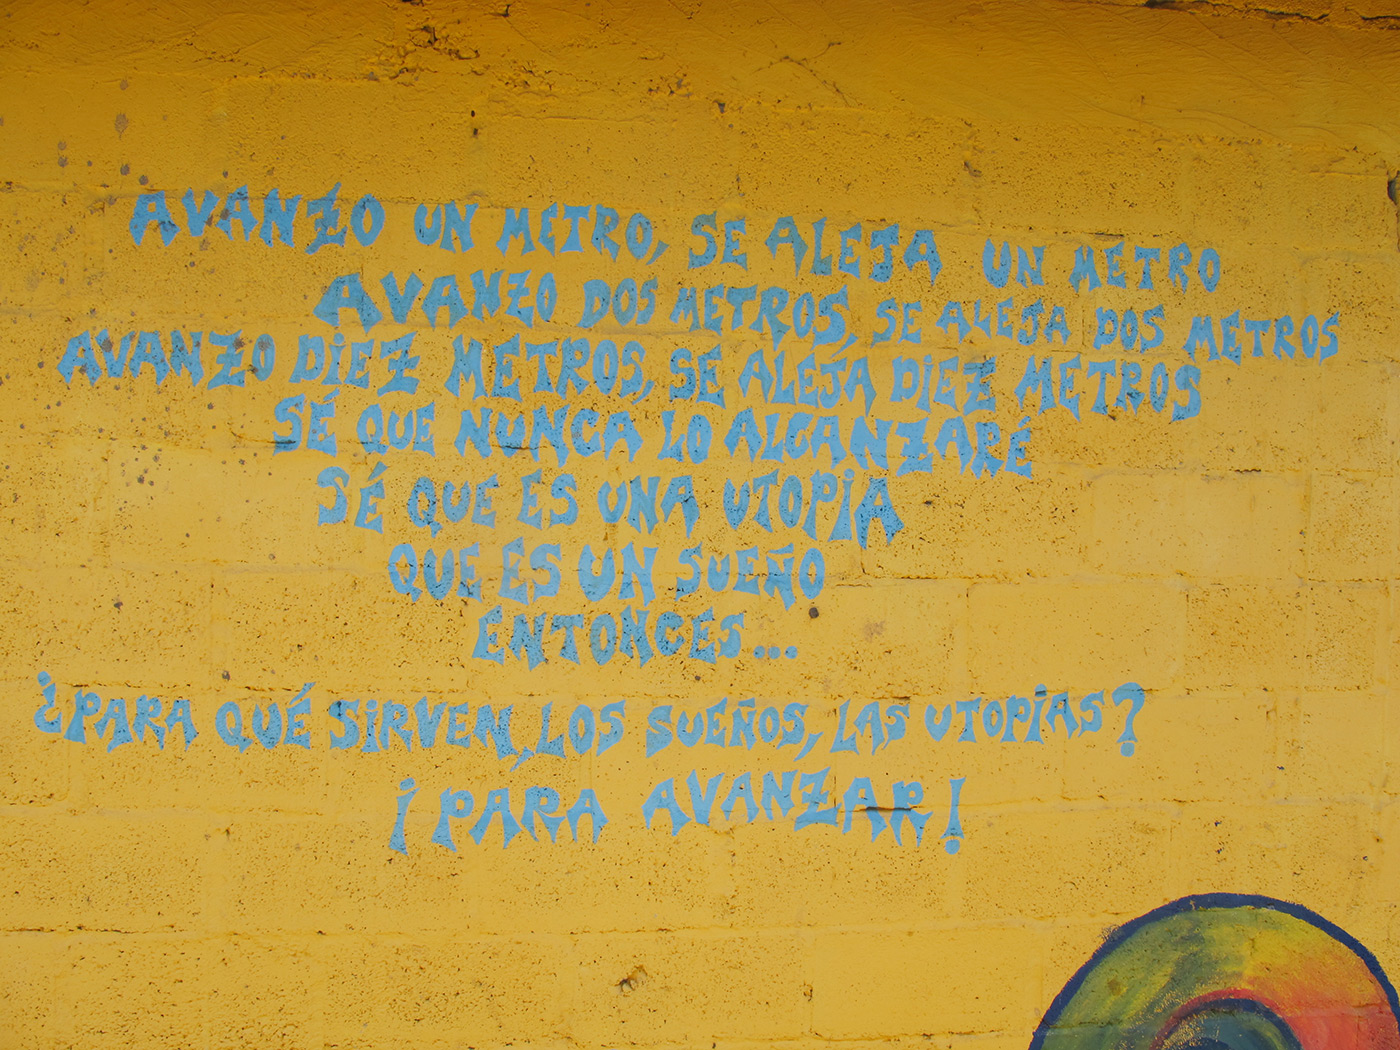 AVANZO UN METRO, SE ALEJA UN METRO
AVANZO DOS METROS, SE ALEJA DOS METROS
AVANZO DIEZ METROS, SE ALEJA DIEZ METROS
SÉ QUE NUNCA LO ALCANZARÉ
SÉ QUE ES UNA UTOPIA
QUE ES UN SUEÑO
ENTONCES...
¿PARA QUÉ SIRVEN, LOS SUEÑOS, LAS UTOPIAS?
¡PARA AVANZAR!